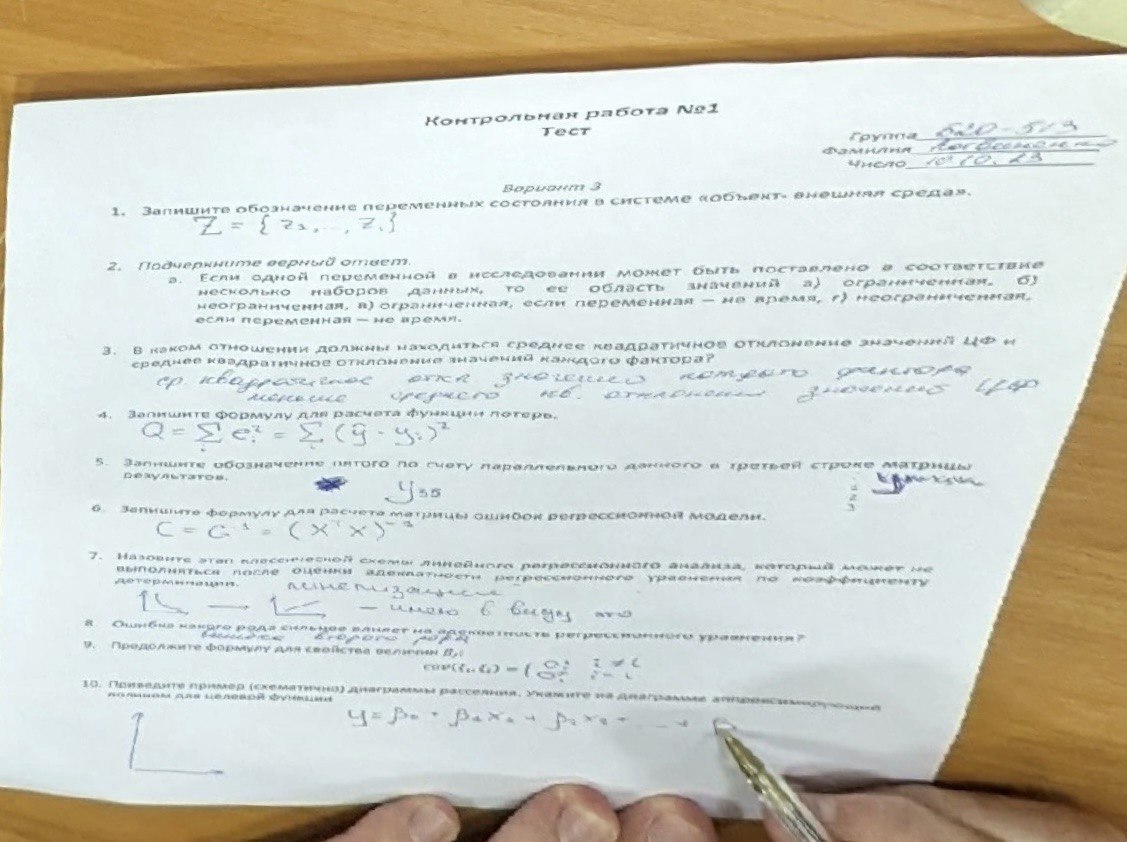 Контрольная работа №1
Тест
Группа
Фамилия
Число 10.10.23
Вариант 3
1. Запишите обозначение переменных состояния в системе «объект- внешняя среда».
Z = { z₁, ..., zᵢ }
2. Подчеркните верный ответ.
а. Если одной переменной в исследовании может быть поставлено в соответствие
несколько наборов данных, то ее область значений а) ограниченная, б)
неограниченная, в) ограниченная, если переменная – не время, г) неограниченная,
если переменная – не время.
3. В каком отношении должны находиться среднее квадратичное отклонение значений ЦФ и
среднее квадратичное отклонение значений каждого фактора?
ср квадратичное откл значений фактора
меньше среднего кв. отклонения значений ЦФ
4. Запишите формулу для расчета функции потерь.
Q = Σ eᵢ² = Σ (ŷ - yᵢ)²
5. Запишите обозначение пятого по счету параллельного данного в третьей строке матрицы
результатов.
y₃₅
1
2
3
6. Запишите формулу для расчета матрицы ошибок регрессионной модели.
C = G⁻¹ = (XᵀX)⁻¹
7. Назовите этап классической схемы линейного регрессионного анализа, который может не
выполняться после оценки адекватности регрессионного уравнения по коэффициенту
детерминации.
– имею в виду это
8. Ошибка какого рода сильнее влияет на адекватность регрессионного уравнения?
второго рода
9. Продолжите формулу для свойства величин
10. Приведите пример (схематично) диаграммы рассеяния. Укажите на диаграмме аппроксимирующий
полином для целевой функции
y = β₀ + β₁x₁ + β₂x₂ + ... + β